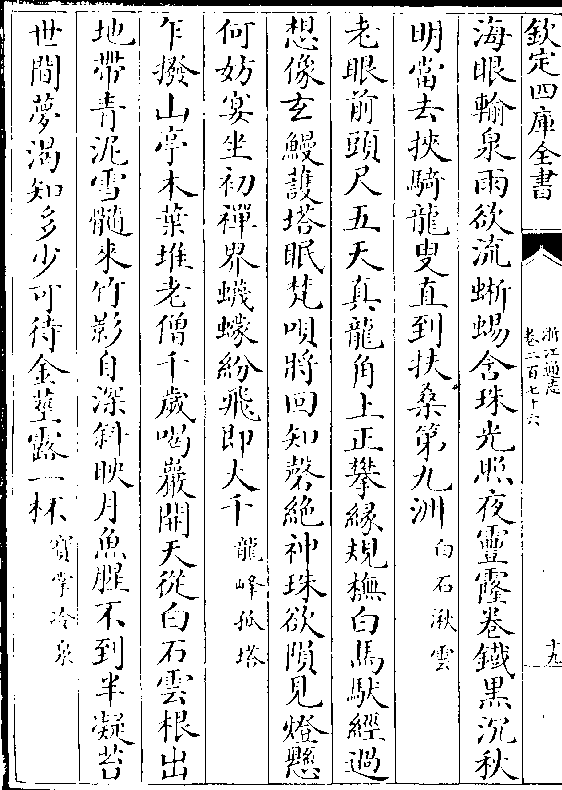 欽定四庫全書
浙江通志
卷二百七十六
十九
海眼輸泉雨欲流蜥蜴含珠光照夜靈霳卷鐵黒沉秋
明當去挾騎龍叟直到扶桑第九洲
白石湫雲
老眼前頭尺五天真龍角上正攀緣規橅白馬馱經過
想像玄鰻䕶塔眠梵唄將回知磬絶神珠欲隕見燈懸
何妨宴坐初禪界蠛蠓紛飛即大千
龍峰孤塔
乍撥山亭木葉堆老僧千歲喝巖開天從白石雲根出
地帶青泥雪髓來竹影自深斜映月魚腥不到半凝苔
世間夢渴知多少可待金莖露一杯
寶掌冷泉